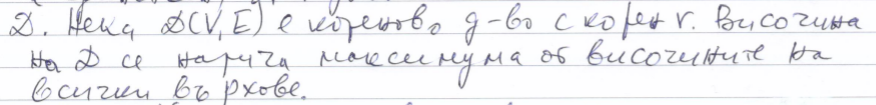 D. Нека D(V,E) е кореново д-во с корен r. Височина
на D се нарича максимума от височините на
всички върхове.